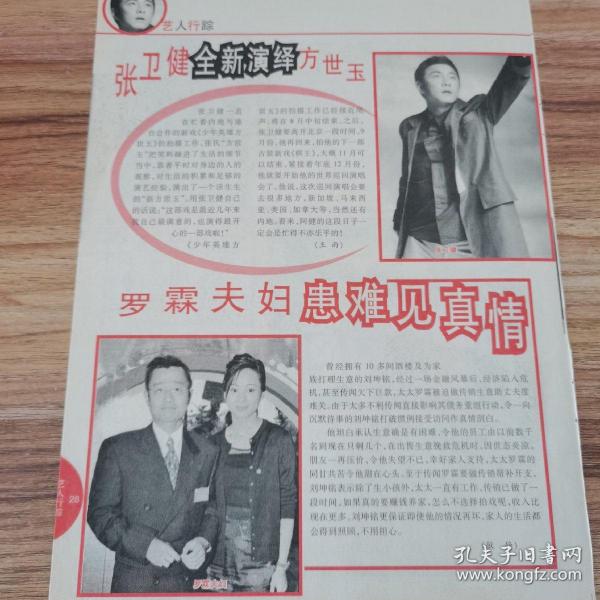 艺人行踪
张卫健全新演绎方世玉
张卫健一直
在忙着内地与港
台合作的新戏《少年英雄方
世玉》的拍摄工作,张氏"方世
玉"把笑料融进了生活的细节
当中,靠着平时对身边的人的
观察,对生活的积累和足够的
演艺经验,演出了一个活生生
的"新方世玉"。用张卫健自己
的话说:"这部戏是最近几年来
我自己最满意的,也演得最开
心的一部戏啦!"
《少年英雄方
世玉》的拍摄工作已经接近尾
声,将在8月中旬结束。之后,
张卫健要离开北京一段时间,9
月份,他再回来,拍他的下一部
古装新戏《棋王》,大概11月可
以结束。紧接着年底12月份,
他就要开始他的世界巡回演唱
会了。他说,这次巡回演唱会要
去很多地方,新加坡、马来西
亚、美国、加拿大等,当然还有
内地。看来,阿健的这段日子一
定会是忙得不亦乐乎的!
罗霖夫妇患难见真情
曾经拥有10多间酒楼及为家
族打理生意的刘坤铭,经过一场金融风暴后,经济陷入危
机,甚至传闻欠下巨款,太太罗霖被迫做传销生意助丈夫度
难关。由于太多不利传闻直接影响其债务重组行动,令一向
沉默待事的刘坤铭打破惯例接受访问作真情剖白。
他坦白承认生意确是有困难,令他的员工由以前数千
名到现在只剩几个,在出售生意挽救危机时,因世态炎凉,
朋友一再压价,令他失望不已,幸好家人支持,太太罗霖的
同甘共苦令他甜在心头。至于传闻罗霖要做传销帮补开支,
刘坤铭表示除了生小孩外,太太一直有工作,传销已做了一
段时间,如果真的要赚钱养家,怎么不选择拍戏呢,收入比
现在更多。刘坤铭更保证即使他的情况再坏,家人的生活都
会得到照顾,不用担心。
罗霖夫妇
艺人行踪
28
孔夫子旧书网
www.kongfz.com